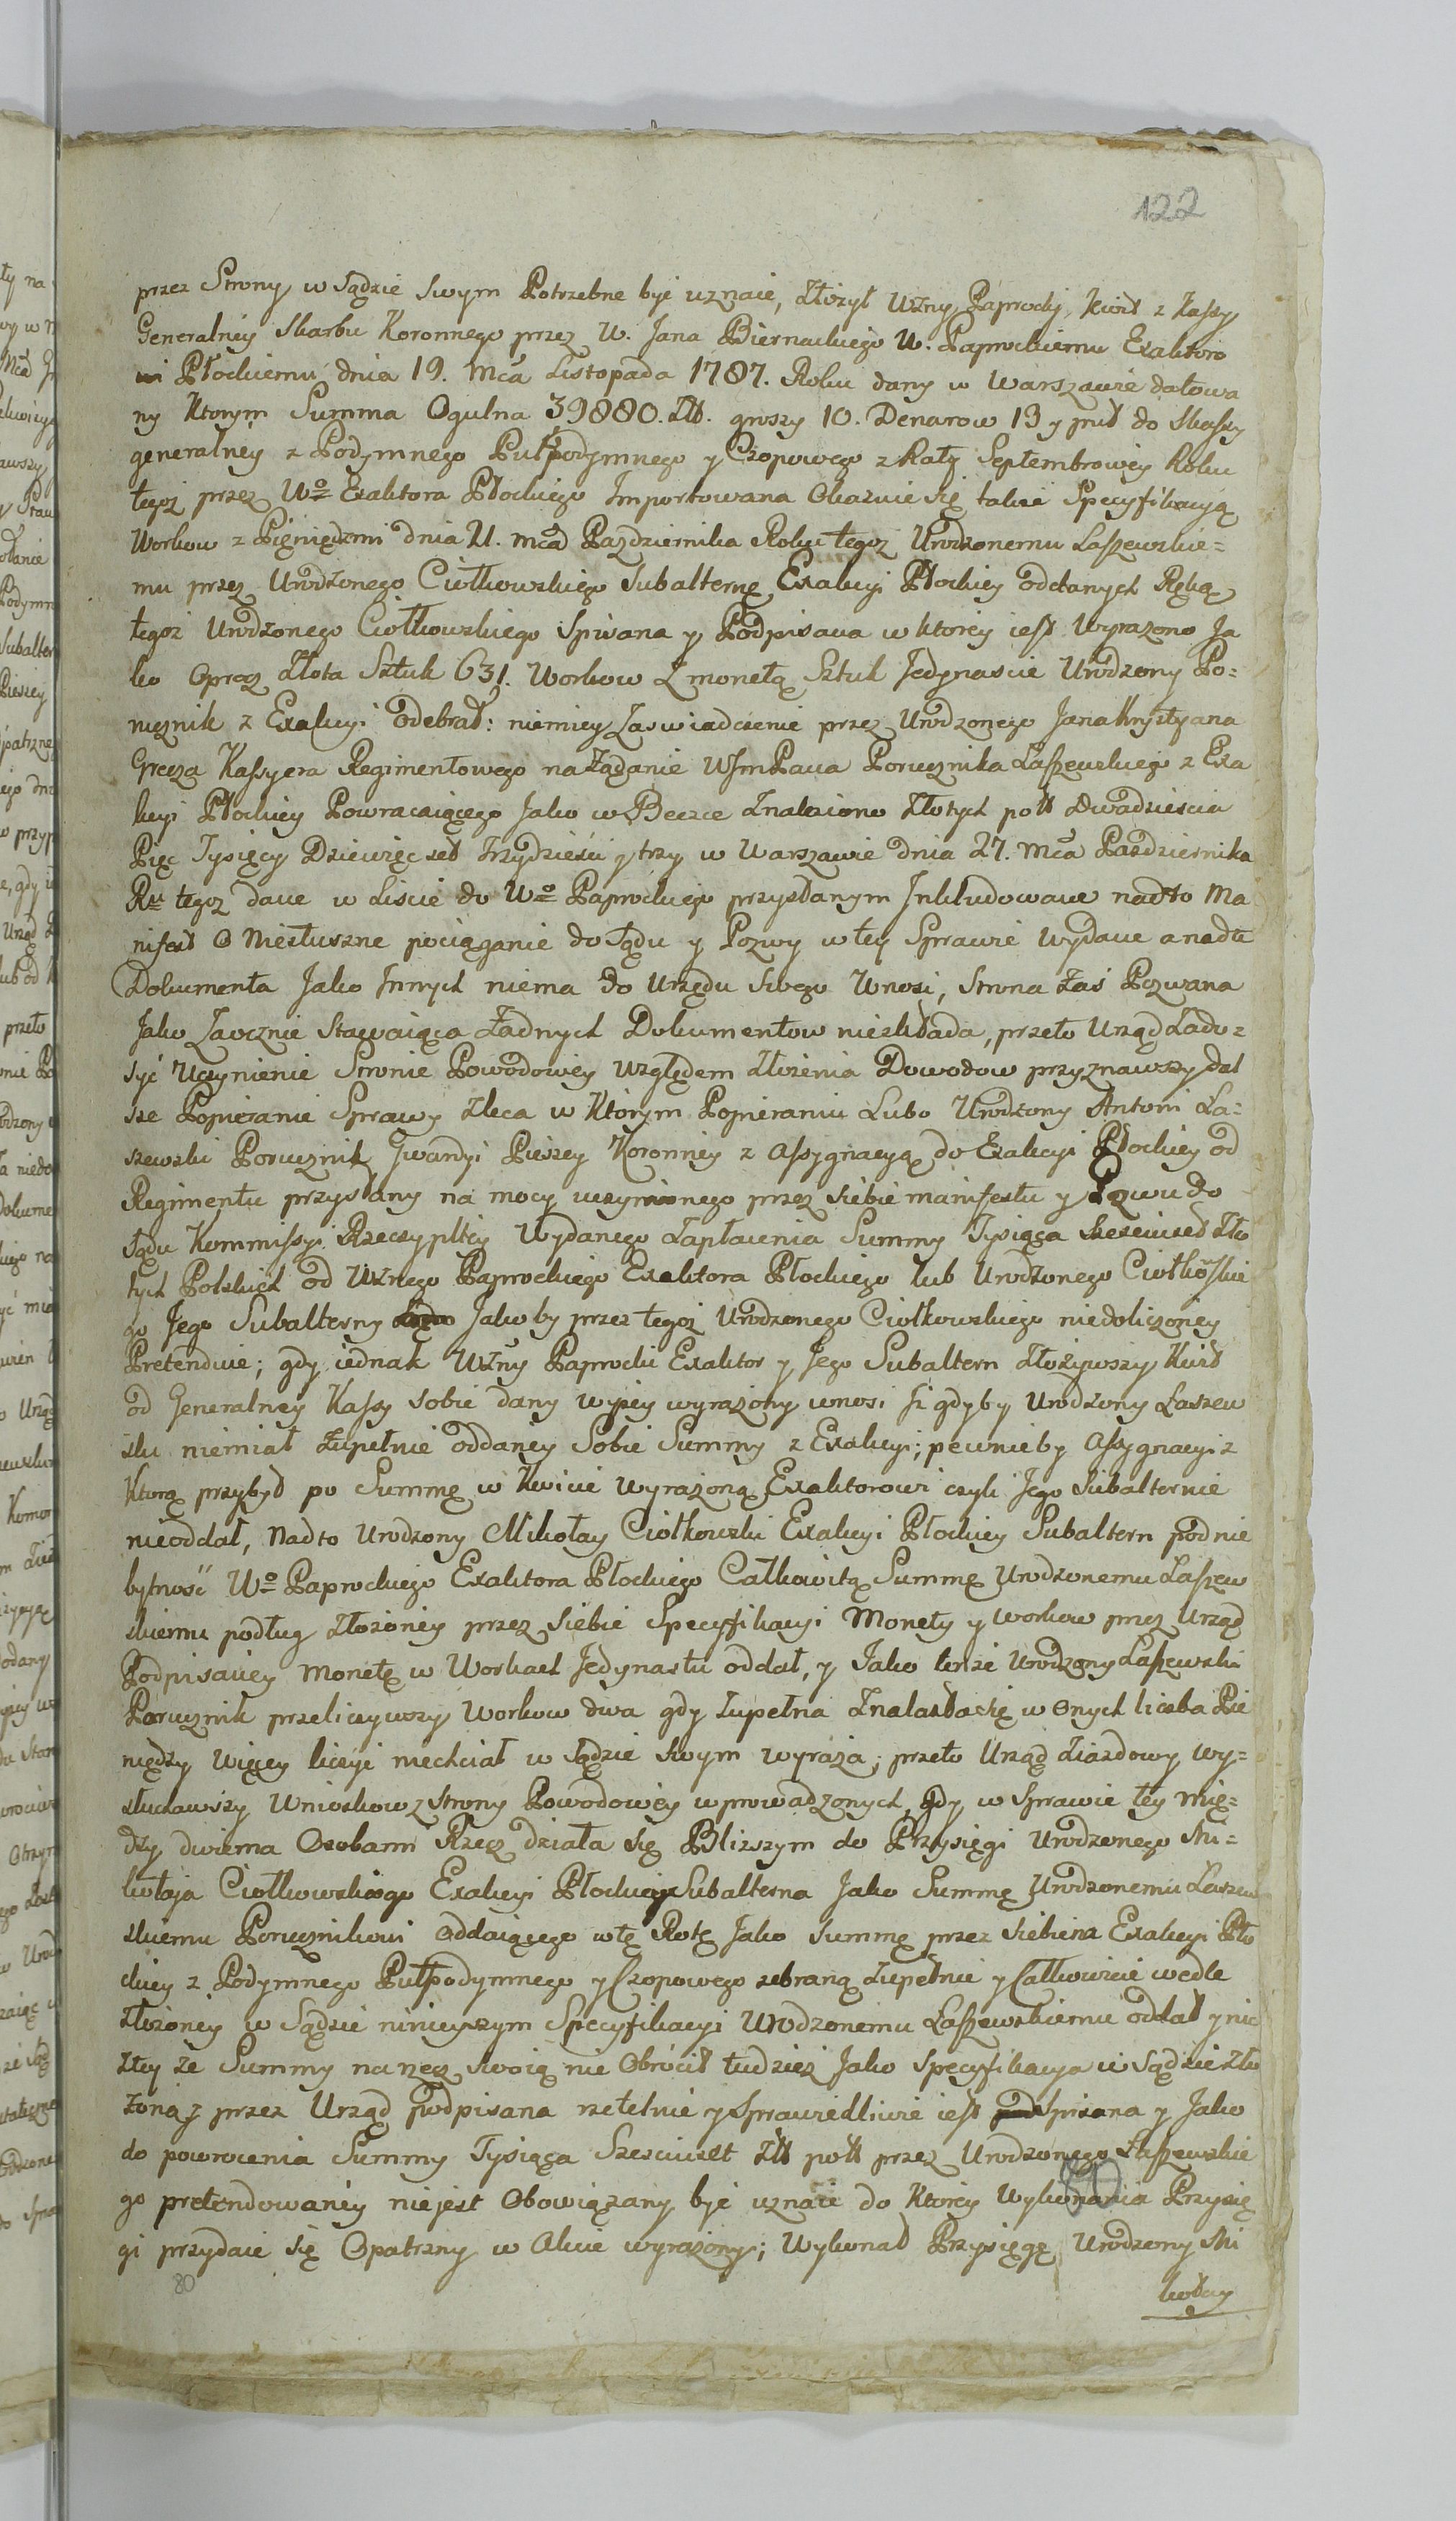 122
przez Strony w Sądzie Swym Potrzebne być uznaie, złożył Wżny Paprocki, Kwit z Kassy
Generalney Skarbu Koronnego przez W. Jana Biernackiego W. Paprockiemu Exaktoro
wi Płockiemu dnia 19. Mca Listopada 1787. Roku dany w Warszawie datowa
ny Ktorym Summa Ogulna 39880. Złł. groszy 10. Denarow 13 y puł do Skassy
generalney z Podymnego Pułpodymnego y Czopowego z Raty Septembrowey Roku
tegoż przez Wo Exaktora Płockiego Importowana Okazuie się także Specyfikacyą
Workow z Pięniędzmi dnia 21. mca Pazdziernika Roku tegoz Urodzonemu Łaszewskie=
mu przez Urodzonego Ciołkowskiego Subalternę Exakcyi Płockiey oddanych Ręką
tegoż Urodzonego Ciołkowskiego Spisana y Podpisana w ktorey iest Wyrazono Ja
ko Oprocz Złota Sztuk 631. Workow z monetą Sztuk Jedynascie Urodzony Po=
rucznik z Exakcyi odebrał: niemiey Zaswiadczenie przez Urodzonego Jana Krystyana
Grecza Kassyera Regimentowego na Żądanie WJmPana Porucznika Łaszewskiego z Exa
kcyi Płockiey Powracaiącego Jako w Beczce Znaleziono Złotych poll Dwadziescia
Pięc Tysięcy Dziewięc set Trzydzieści y trzy w Warszawie dnia 27. Mca Pazdziernika
Ru tegoz dane w Liscie do Wo Paprockiego przysłanym Inkludowane nadto Ma
nifest O Niesłuszne pociąganie do Sądu y Pozwy w tey Sprawie Wydane a nadto
Dokumenta Jako Innych niema do Urzędu Swego Wnosi, Strona Zaś Pozwana
Jako Zaocznie Stawaiąca Żadnych Dokumentow nieskłada, przeto Urząd Zado=
syć Uczynienie Stronie Powodowey względem złożenia Dowodow przyznawszy dal
sze Popieranie Sprawy Zleca w Którym Popieraniu Lubo Urodzony Antoni Ła=
szewski Porucznik Gwardyi Pieszey Koronney z Assygnacyą do Exakcyi Płockiey od
Regimentu przysłany na mocy uczynionego przez siebie manifestu y Pozwu do
Sądu Kommissyi Rzeczypltey Wydanego Zapłacenia Summy Tysiąca Szesciuset Zło
tych Polskich od Wżnego Paprockiego Exaktora Płockiego lub Urodzonego Ciołkoskie
go Jego Subalterny Jakoby przez tegoż Urodzonego Ciołkowskiego niedoliczoney
Pretenduie; gdy iednak Wżny Paprocki Exaktor y Jego Subaltern złożywszy Kwit
od Generalney Kassy sobie dany wyżey wyrażony wnosi Iż gdyby Urodzony Łaszew
ski niemiał Zupełnie oddaney Sobie Summy z Exakcyi; pewnieby Assygnacyi z
Ktorą przybył po Summę w Kwicie wyrażoną Exaktorowi czyli Jego Subalternie
nieoddał, Nadto Urodzony Mikołay Ciołkowski Exakcyi Płockiey Subaltern pod nie
bytność Wo Paprockiego Exaktora Płockiego Całkowitą Summę Urodzonemu Łaszew
skiemu podług złożoney przez siebie Specyfikacyi Monety y workow przez Urząd
Podpisaney Monetę w Workach Jedynastu oddał, y Jako tenże Urodzony Łaszewski
Porucznik przeliczywszy Workow dwa gdy Zupełna Znalazła się w Onych liczba Pie
niędzy więcey liczyc niechciał w Sądzie Swym wyraża; przeto Urząd Ziazdowy wy=
słuchawszy Wnioskow z Strony Powodowey wprowadzonych, gdy w Sprawie tey mię=
dzy dwiema Osobami Rzecz działa się Bliższym do Przysięgi Urodzonego Mi=
kołaja Ciołkowskiego Exakcyi Płockiey Subalterna Jako Summę Urodzonemu Łaszew
skiemu Porucznikowi oddaiącego w tę Rotę Jako Summę przez siebie z Exakcyi Pło
ckiey z Podymnego Pułpodymnego y Czopowego zebraną Zupełnie y Całkowicie wedle
złożoney w Sądzie ninieyszym Specyfikacyi Urodzonemu Łaszewskiemu oddał y nic
z tey że Summy na rzecz Swoią nie Obrócił tudzież Jako Specyfikacya w Sądzie zło
żona y przez Urząd podpisana rzetelnie y Sprawiedliwie iest Spisana y Jako
do powrocenia Summy Tysiąca Szesciuset Złł poll przez Urodzonego Łaszewskie
go pretendowaney niejest Obowiązany być uznaie do Ktorey Wykonania Przysię
gi przydaie się Opatrzny w Akcie wyrażony; Wykonał Przysięgę Urodzony Mi
kołay
80
80